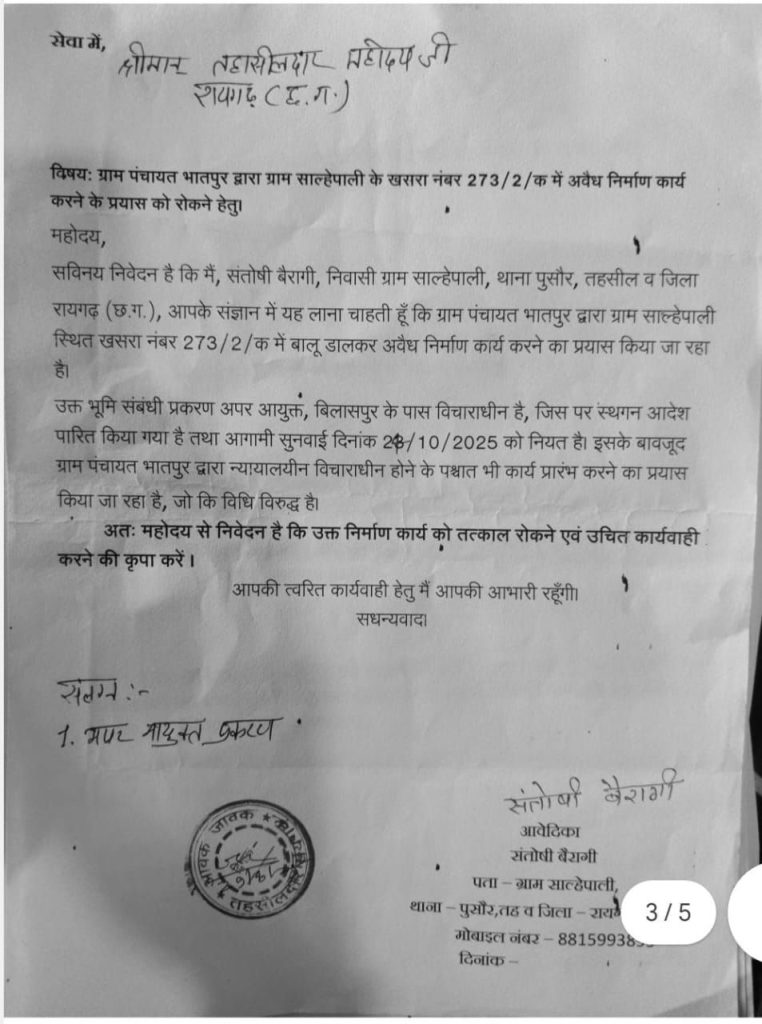 सेवा में,
श्रीमान तहासीलदार महोदय जी
रायगढ़ (छ.ग.)
विषय: ग्राम पंचायत भातपुर द्वारा ग्राम साल्हेपाली के खसरा नंबर 273/2/क में अवैध निर्माण कार्य
करने के प्रयास को रोकने हेतु।
महोदय,
सविनय निवेदन है कि मैं, संतोषी बैरागी, निवासी ग्राम साल्हेपाली, थाना पुसौर, तहसील व जिला
रायगढ़ (छ.ग.), आपके संज्ञान में यह लाना चाहती हूँ कि ग्राम पंचायत भातपुर द्वारा ग्राम साल्हेपाली
स्थित खसरा नंबर 273/2/क में बालू डालकर अवैध निर्माण कार्य करने का प्रयास किया जा रहा
है।
उक्त भूमि संबंधी प्रकरण अपर आयुक्त, बिलासपुर के पास विचाराधीन है, जिस पर स्थगन आदेश
पारित किया गया है तथा आगामी सुनवाई दिनांक /10/2025 को नियत है। इसके बावजूद
ग्राम पंचायत भातपुर द्वारा न्यायालयीन विचाराधीन होने के पश्चात भी कार्य प्रारंभ करने का प्रयास
किया जा रहा है, जो कि विधि विरुद्ध है।
अतः महोदय से निवेदन है कि उक्त निर्माण कार्य को तत्काल रोकने एवं उचित कार्यवाही
करने की कृपा करें।
आपकी त्वरित कार्यवाही हेतु मैं आपकी आभारी रहूँगी।
सधन्यवाद।
संलग्न :-
1. अपर आयुक्त प्रकरण
संतोषी बैरागी
आवेदिका
संतोषी बैरागी
पता – ग्राम साल्हेपाली,
थाना – पुसौर,तह व जिला –
मोबाइल नंबर –
दिनांक –
आवक जावक
तहसीलदार
3 / 5